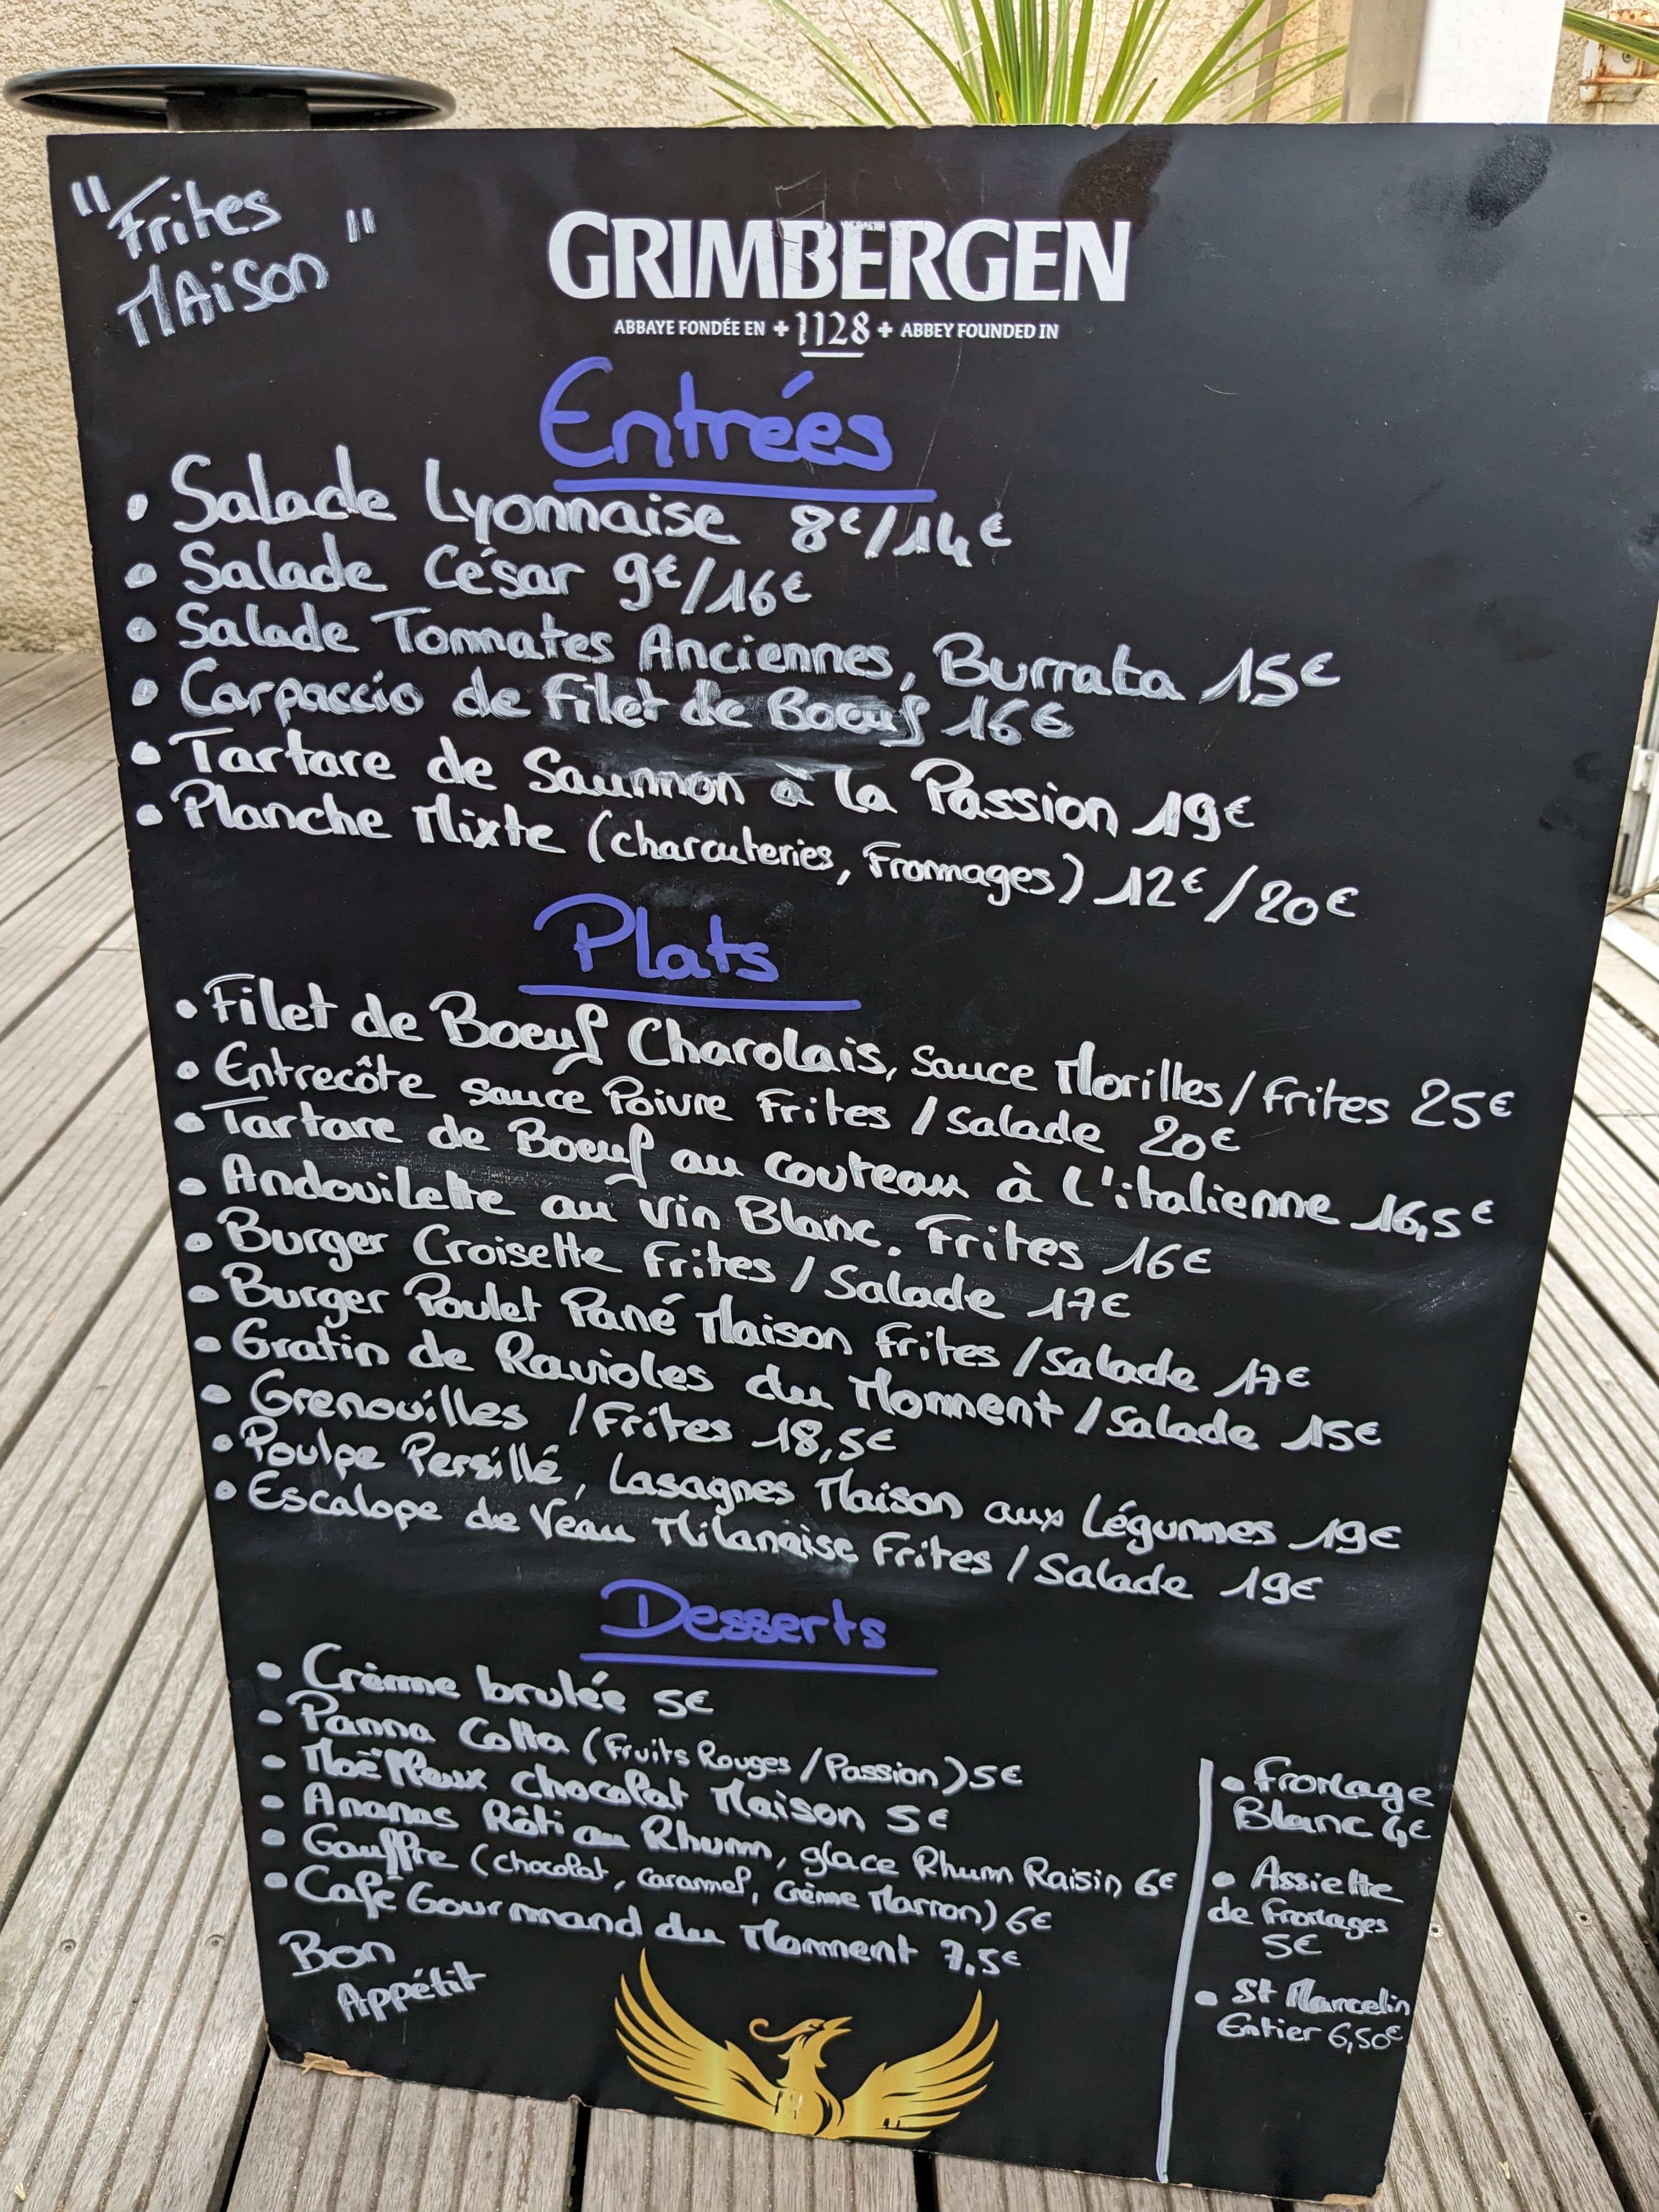 "Frites
MAison"
GRIMBERGEN
ABBAYE FONDÉE EN + 1128 + ABBEY FOUNDED IN
Entrées
• Salade Lyonnaise 8€/14€
• Salade César 9€/16€
• Salade Tommates Anciennes, Burrata 15€
• Carpaccio de Filet de Boeuf 16€
• Tartare de Saummon à la Passion 19€
• Planche Mixte (charcuteries, Frommages) 12€/20€
Plats
• Filet de Boeuf Charolais, sauce Morilles/frites 25€
• Entrecôte sauce Poivre Frites /salade 20€
• Tartare de Boeuf au couteau à l'italienne 16,5€
• Andouilette au Vin Blanc. Frites 16€
• Burger Croisette Frites / Salade 17€
• Burger Poulet Pané Maison Frites /Salade 17€
• Gratin de Ravioles du Momment /Salade 15€
• Grenouilles /Frites 18,5€
• Poulpe Persillé, Lasagnes Maison aux Légummes 19€
• Escalope de Véau Milanaise Frites / Salade 19€
Desserts
• Crèmme brulée 5€
• Panna Cotta (Fruits Rouges /Passion) 5€
• Moëlleux chocolat Maison 5€
• Ananas Rôti au Rhumm, glace Rhumm Raisin 6€
• Gauffre (chocolat, caramel, Crème Marron) 6€
• Café Gourmmand du Momment 7,5€
Bon
Appétit
• fromage
Blanc 4€
• Assiette
de fromages
5€
• St Marcelin
Entier 6,50€